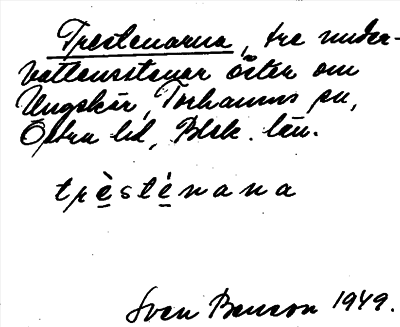 Trestenarna, tre under-
vattensstenar öster om
Ungskär, Torhamns sn,
Östra hd, Blek. län.
trèsténana
Sven Benson 1949.